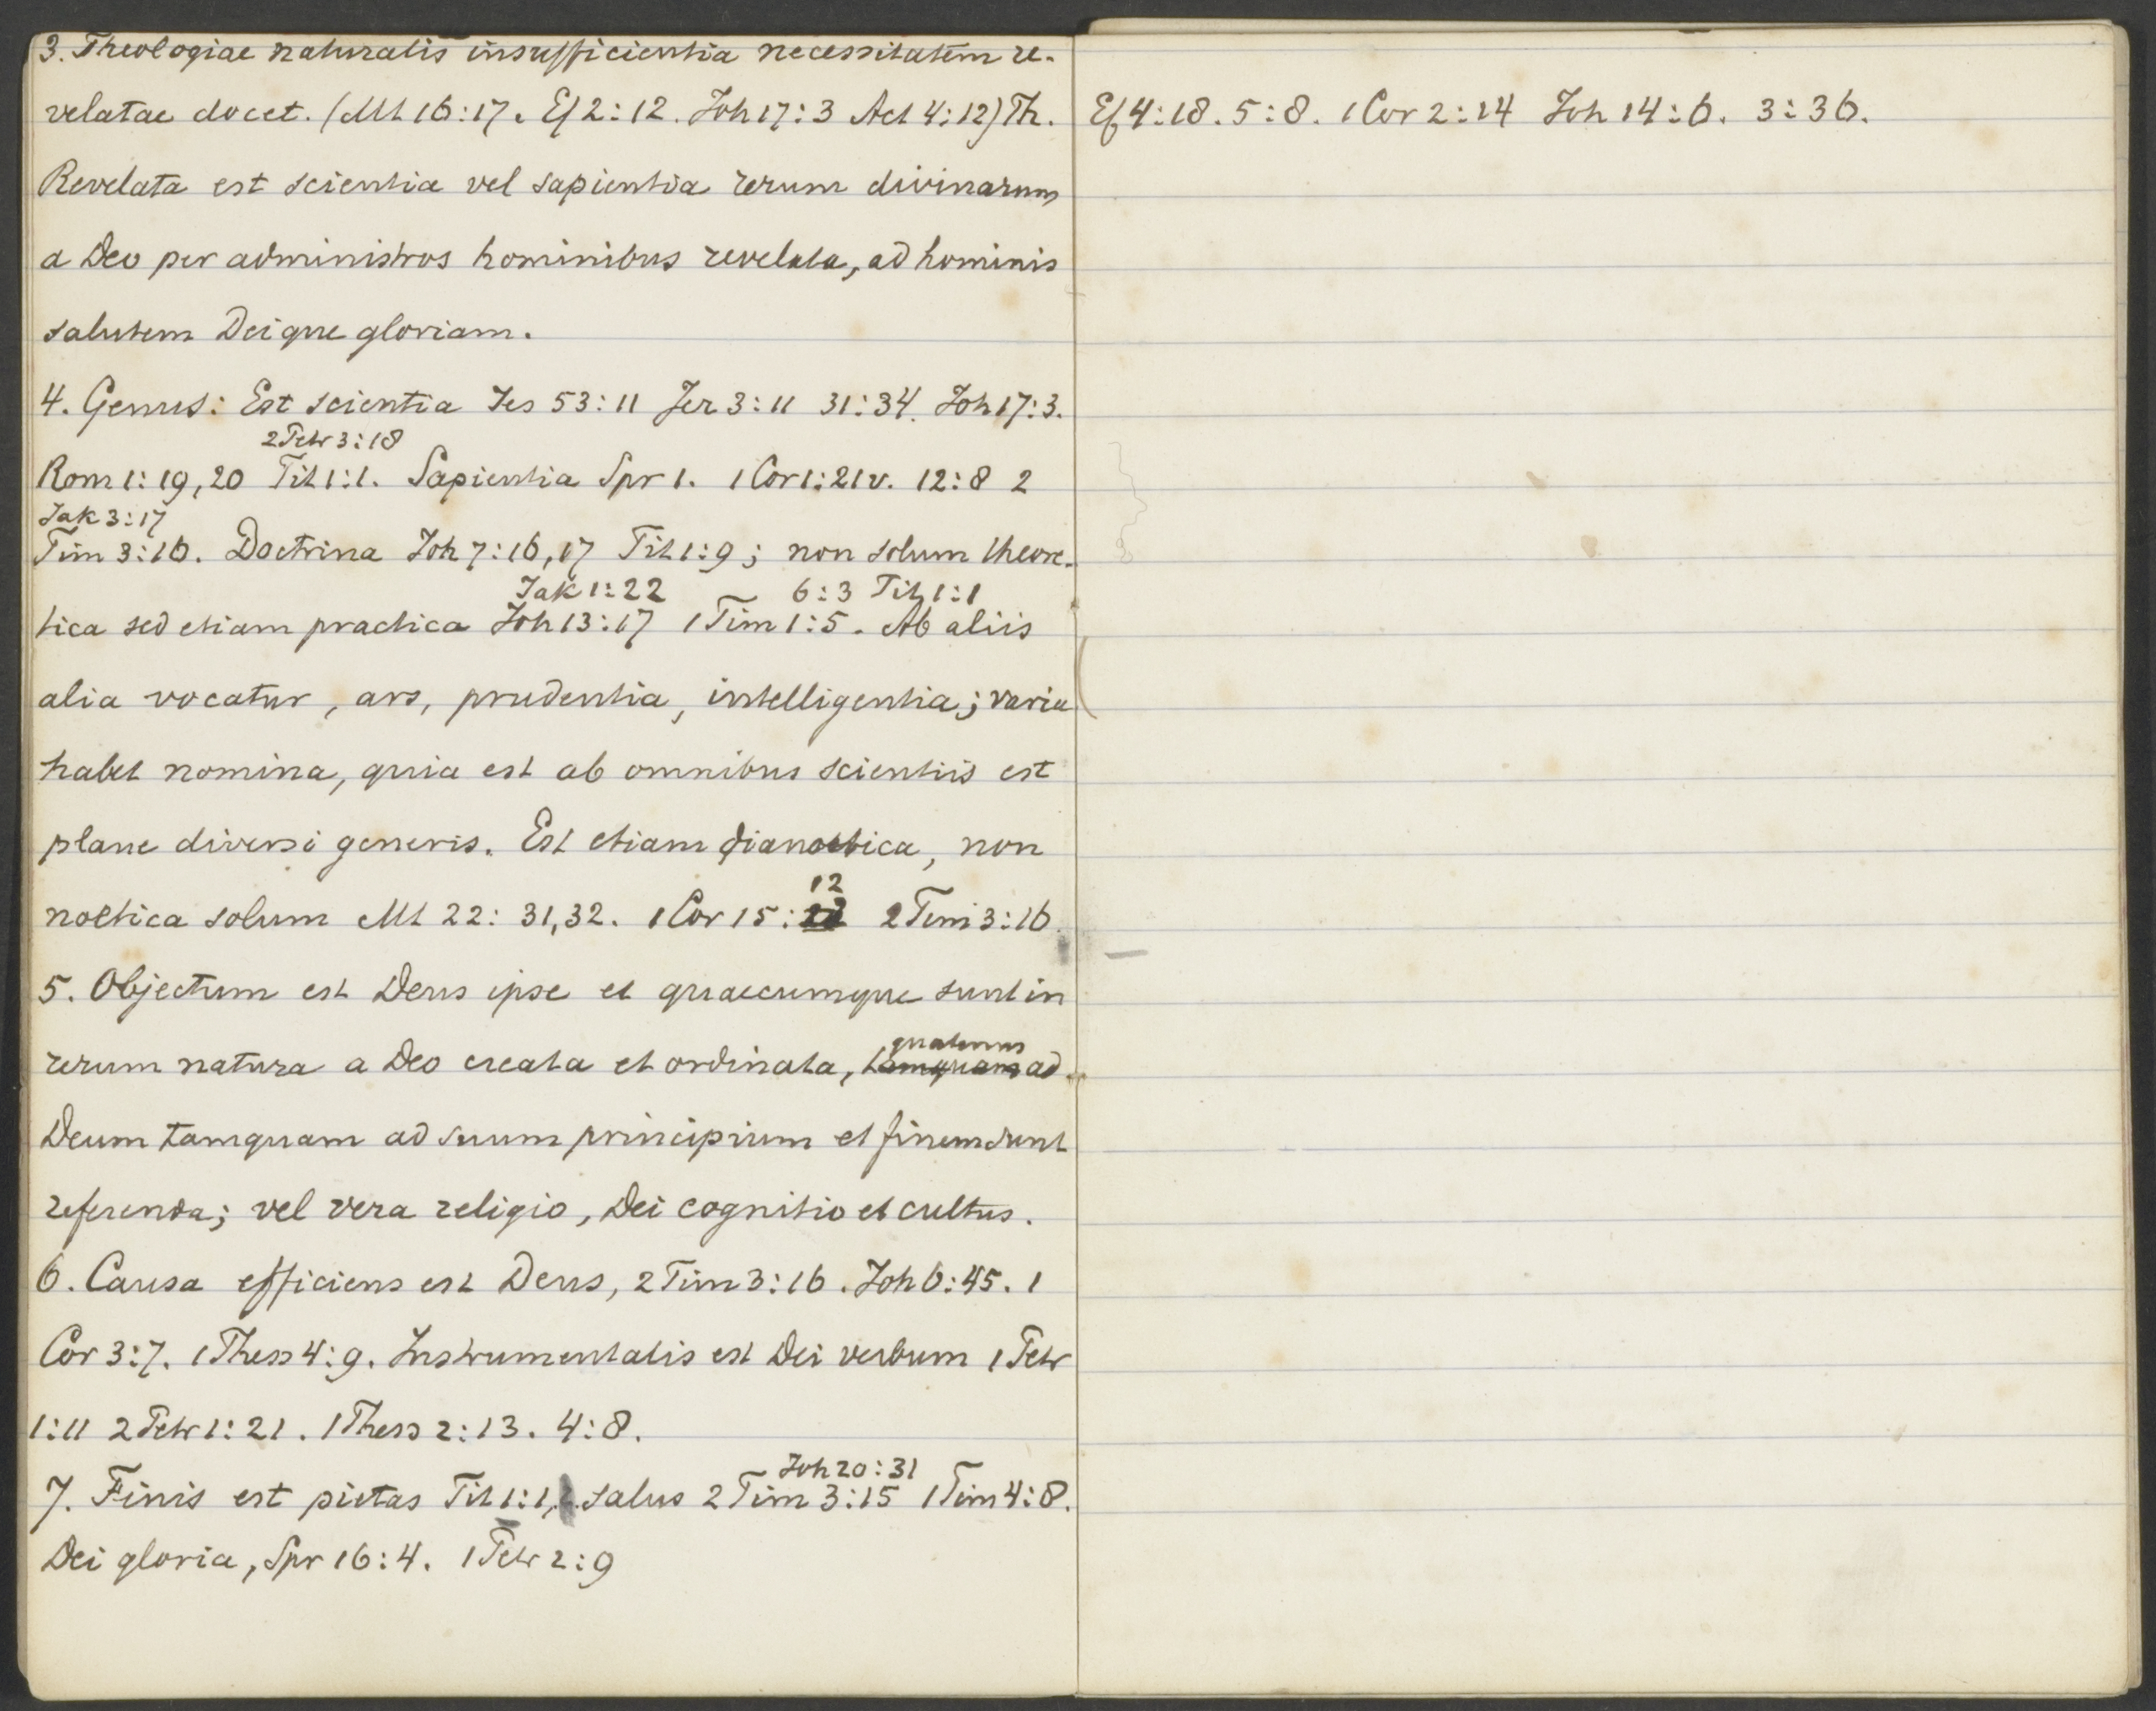 3. Theologiae naturalis insufficientia necessitatem re-
velatae docet. (Mt 16:17. Ef 2:12. Joh 17:3 Act 4:12) Th.
Revelata est scientia vel sapientia rerum divinarum
a Deo per administros hominibus revelata, ad hominis
salutem Deique gloriam.
4. Genus: Est scientia Jes 53:11 Jer 3:11 31:34. Joh 17:3.
2 Petr 3:18
Rom 1:19,20 Tit 1:1. Sapientia Spr 1. 1 Cor 1:21v. 12:8 2
Jak 3:17
Tim 3:16. Doctrina Joh 7:16,17 Tit 1:9; non solum theore-
Jak 1:22 6:3 Tit 1:1
tica sed etiam practica Joh 13:17 1 Tim 1:5. Ab aliis
alia vocatur, ars, prudentia, intelligentia; varia
habet nomina, quia est ab omnibus scientiis est
plane diversi generis. Est etiam dianoetica, non
12
noetica solum Mt 22: 31,32. 1 Cor 15: 2 Tim 3:16.
5. Objectum est Deus ipse et quaecumque sunt in
quatenus
rerum natura a Deo creata et ordinata, tamquam ad
Deum tamquam ad suum principium et finem sunt
referenda; vel vera religio, Dei cognitio et cultus.
6. Causa efficiens est Deus, 2 Tim 3:16. Joh 6:45. 1
Cor 3:7. 1 Thess 4:9. Instrumentalis est Dei verbum 1 Petr
1:11 2 Petr 1:21. 1 Thess 2:13. 4:8.
Joh 20:31
7. Finis est pietas Tit 1:1, salus 2 Tim 3:15 1 Tim 4:8.
Dei gloria, Spr 16:4. 1 Petr 2:9
Ef 4:18. 5:8. 1 Cor 2:14 Joh 14:6. 3:36.